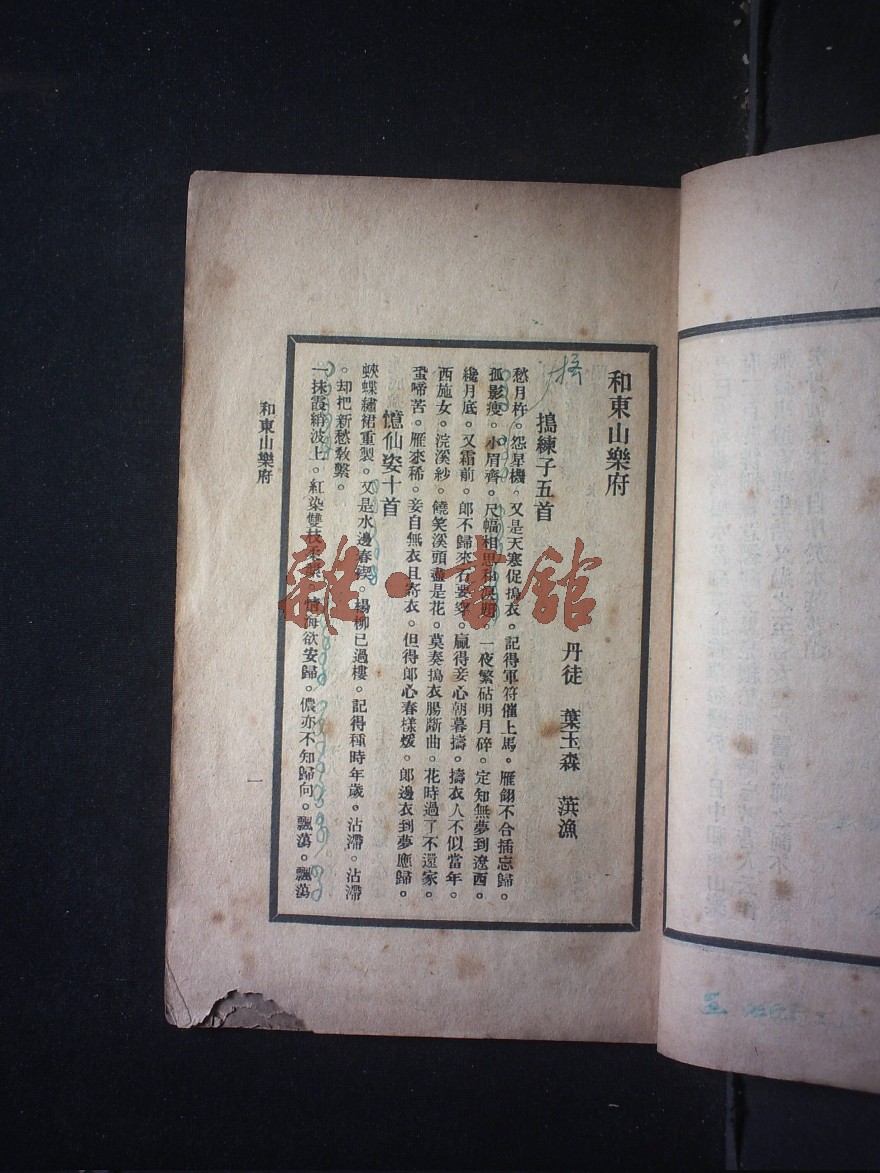 和東山樂府
丹徒 葉玉森 葓漁
搗練子五首
愁月杵。怨星機。又是天寒促搗衣。記得軍符催上馬。雁翎不合插忘歸。
孤影瘦。小眉齊。尺幅相思和淚題。一夜繁砧明月碎。定知無夢到遼西。
纔月底。又霜前。郎不歸來石要穿。贏得妾心朝暮擣。擣衣人不似當年。
西施女。浣溪紗。饒笑溪頭盡是花。莫奏搗衣腸斷曲。花時過了不還家。
蛩啼苦。雁來稀。妾自無衣且寄衣。但得郎心春樣煖。郎邊衣到夢應歸。
憶仙姿十首
蛺蝶繡裙重製。又是水邊春禊。楊柳已過樓。記得種時年歲。沾滯。沾滯
。却把新愁敎繫。
一抹霞綃波上。紅染雙枝柔槳。情海欲安歸。儂亦不知歸向。飄蕩。飄蕩
和東山樂府
一
雜·書館